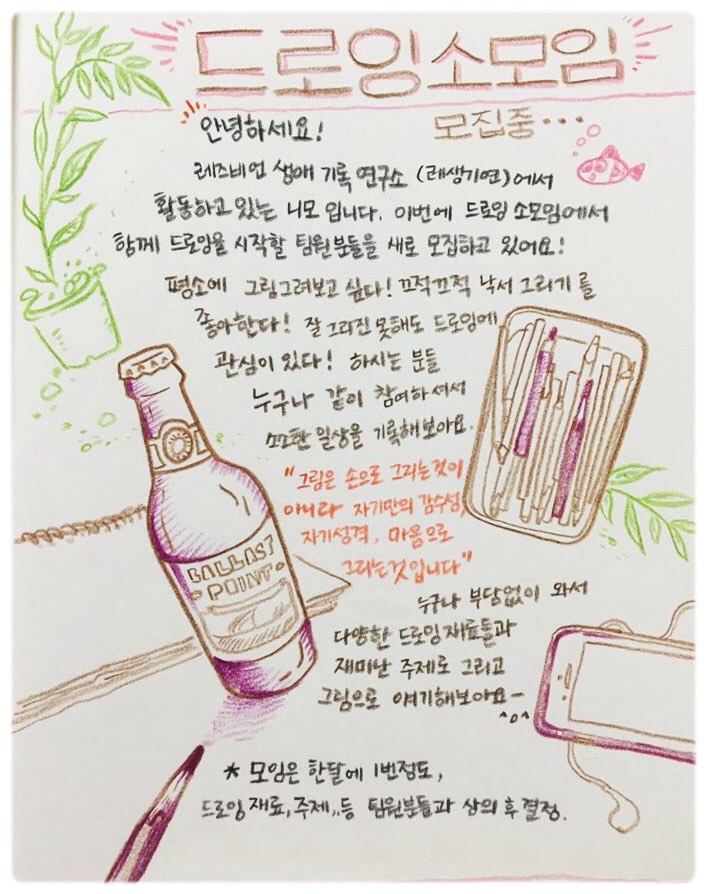 드로잉소모임
모집중...
안녕하세요!
레즈비언 생애 기록 연구소 (레생기연)에서
활동하고 있는 니모 입니다. 이번에 드로잉 소모임에서
함께 드로잉을 시작할 팀원분들을 새로 모집하고 있어요!
평소에 그림그려보고 싶다! 끄적끄적 낙서 그리기 를
좋아한다! 잘 그리진 못해도 드로잉에
관심이 있다! 하시는 분들
누구나 같이 참여하셔서
소소한 일상을 기록해보아요.
"그림은 손으로 그리는것이
아니라 자기만의 감수성,
자기성격, 마음으로
그리는것입니다"
누구나 부담없이 와서
다양한 드로잉재료들과
재미난 주제로 그리고
그림으로 얘기해보아요-
^o^
* 모임은 한달에 1번정도,
드로잉 재료, 주제,, 등 팀원분들과 상의 후 결정.
BALLAST
POINT